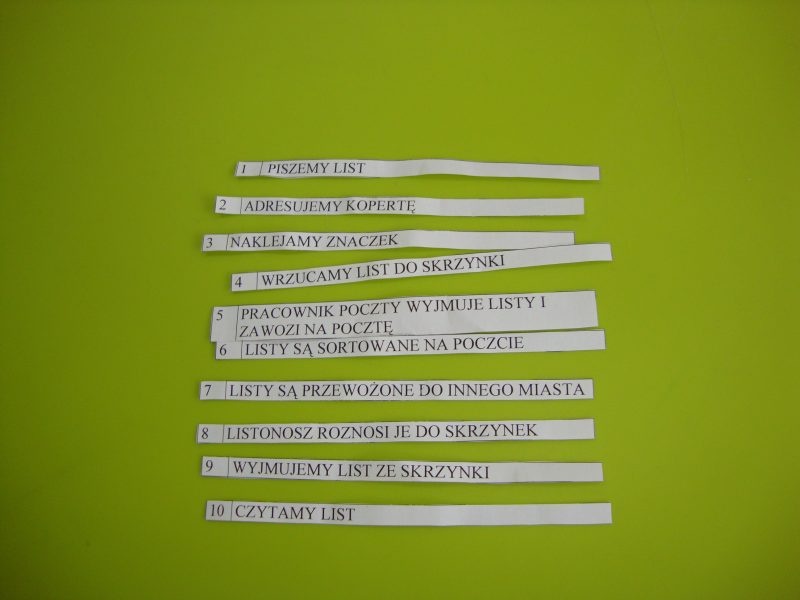 1 PISZEMY LIST
2 ADRESUJEMY KOPERTĘ
3 NAKLEJAMY ZNACZEK
4 WRZUCAMY LIST DO SKRZYNKI
5 PRACOWNIK POCZTY WYJMUJE LISTY I
ZAWOZI NA POCZTĘ
6 LISTY SĄ SORTOWANE NA POCZCIE
7 LISTY SĄ PRZEWOŻONE DO INNEGO MIASTA
8 LISTONOSZ ROZNOSI JE DO SKRZYNEK
9 WYJMUJEMY LIST ZE SKRZYNKI
10 CZYTAMY LIST